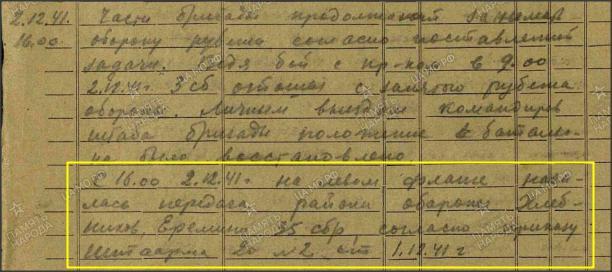 2.12.41. Части бригады продолжают занимат
16.00 оборону рубежа согласно поставленной
задачи. Ведя бой с пр-ком в 9.00
2.12.41г 3 сб отошел с занятого рубежа
обороны. Личным выездом командиров
штаба бригады положение в батальо-
не было восстановлено.
С 16.00 2.12.41г на левом фланге нача-
лась передача района обороны Хлеб-
ников, Еремино 35 сбр, согласно приказу
Штаарма 20 №2 от 1.12.41 г
ПАМЯТЬ НАРОДА
ЦАМО РФ